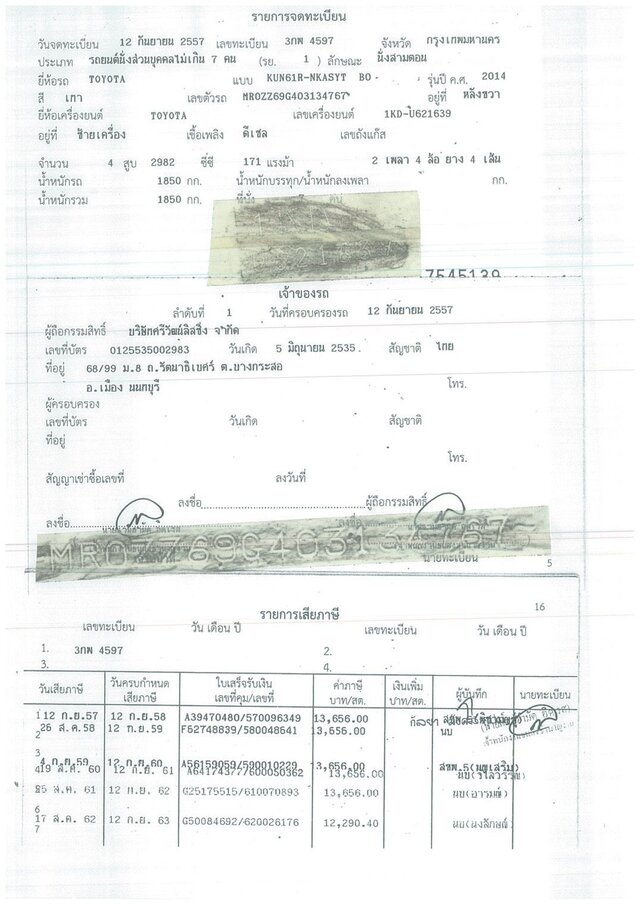 รายการจดทะเบียน
วันจดทะเบียน 12 กันยายน 2557 เลขทะเบียน 3กพ 4597 จังหวัด กรุงเทพมหานคร
ประเภท รถยนต์นั่งส่วนบุคคลไม่เกิน 7 คน (รย. 1 ) ลักษณะ นั่งสามตอน
ยี่ห้อรถ TOYOTA แบบ KUN61R-NKASYT BO - รุ่นปี ค.ศ. 2014
สี เทา เลขตัวรถ MROZZ69G403134767 อยู่ที่ หลังขวา
ยี่ห้อเครื่องยนต์ TOYOTA เลขเครื่องยนต์ 1KD-U621639
อยู่ที่ ซ้ายเครื่อง เชื้อเพลิง ดีเซล เลขถังแก๊ส
จำนวน 4 สูบ 2982 ซีซี 171 แรงม้า 2 เพลา 4 ล้อ ยาง 4 เส้น
น้ำหนักรถ 1850 กก. น้ำหนักบรรทุก/น้ำหนักลงเพลา กก.
น้ำหนักรวม 1850 กก. ที่นั่ง 7 คน
7545139
เจ้าของรถ
ลำดับที่ 1 วันที่ครอบครองรถ 12 กันยายน 2557
ผู้ถือกรรมสิทธิ์ บริษัทศรีวัฒน์ลิสซิ่ง จำกัด
เลขที่บัตร 0125535002983 วันเกิด 5 มิถุนายน 2535 สัญชาติ ไทย
ที่อยู่ 68/99 ม.8 ถ.รัตนาธิเบศร์ ต.บางกระสอ
อ.เมือง นนทบุรี โทร.
ผู้ครอบครอง
เลขที่บัตร วันเกิด สัญชาติ
ที่อยู่
โทร.
สัญญาเช่าซื้อเลขที่ ลงวันที่
ลงชื่อ ผู้ถือกรรมสิทธิ์
ลงชื่อ
MROZZ69G403134767
นายทะเบียน
5
16
รายการเสียภาษี
เลขทะเบียน วัน เดือน ปี เลขทะเบียน วัน เดือน ปี
1. 3กพ 4597 2.
3. 4.
วันเสียภาษี วันครบกำหนดเสียภาษี ใบเสร็จรับเงิน เล่มที่คุม/เลขที่ ค่าภาษี บาท/สต. เงินเพิ่ม บาท/สต. ผู้บันทึก นายทะเบียน
1 12 ก.ย.57 12 ก.ย.58 A39470480/570096349 13,656.00
2 26 ส.ค.58 12 ก.ย.59 F62748839/580048641 13,656.00 นบ
3 4 ก.ย.59 12 ก.ย.60 A56159059/590011280 13,656.00
4 19 ส.ค. 60 12 ก.ย. 61 A64174377/600050362 13,656.00
5 25 ส.ค. 61 12 ก.ย. 62 G25175515/610070893 13,656.00 นบ(อารมณ์)
6
17 ส.ค. 62 12 ก.ย. 63 G50084692/620026176 12,290.40 นบ(นงลักษณ์)
7